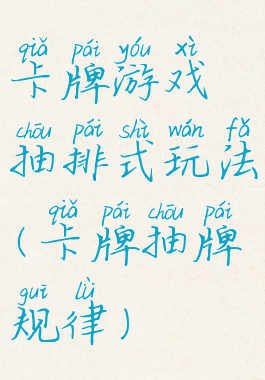 qiǎ pái yóu xì
卡牌游戏
chōu pái shì wán fǎ
抽排式玩法
qiǎ pái chōu pái
(卡牌抽牌
guī lǜ
规律)